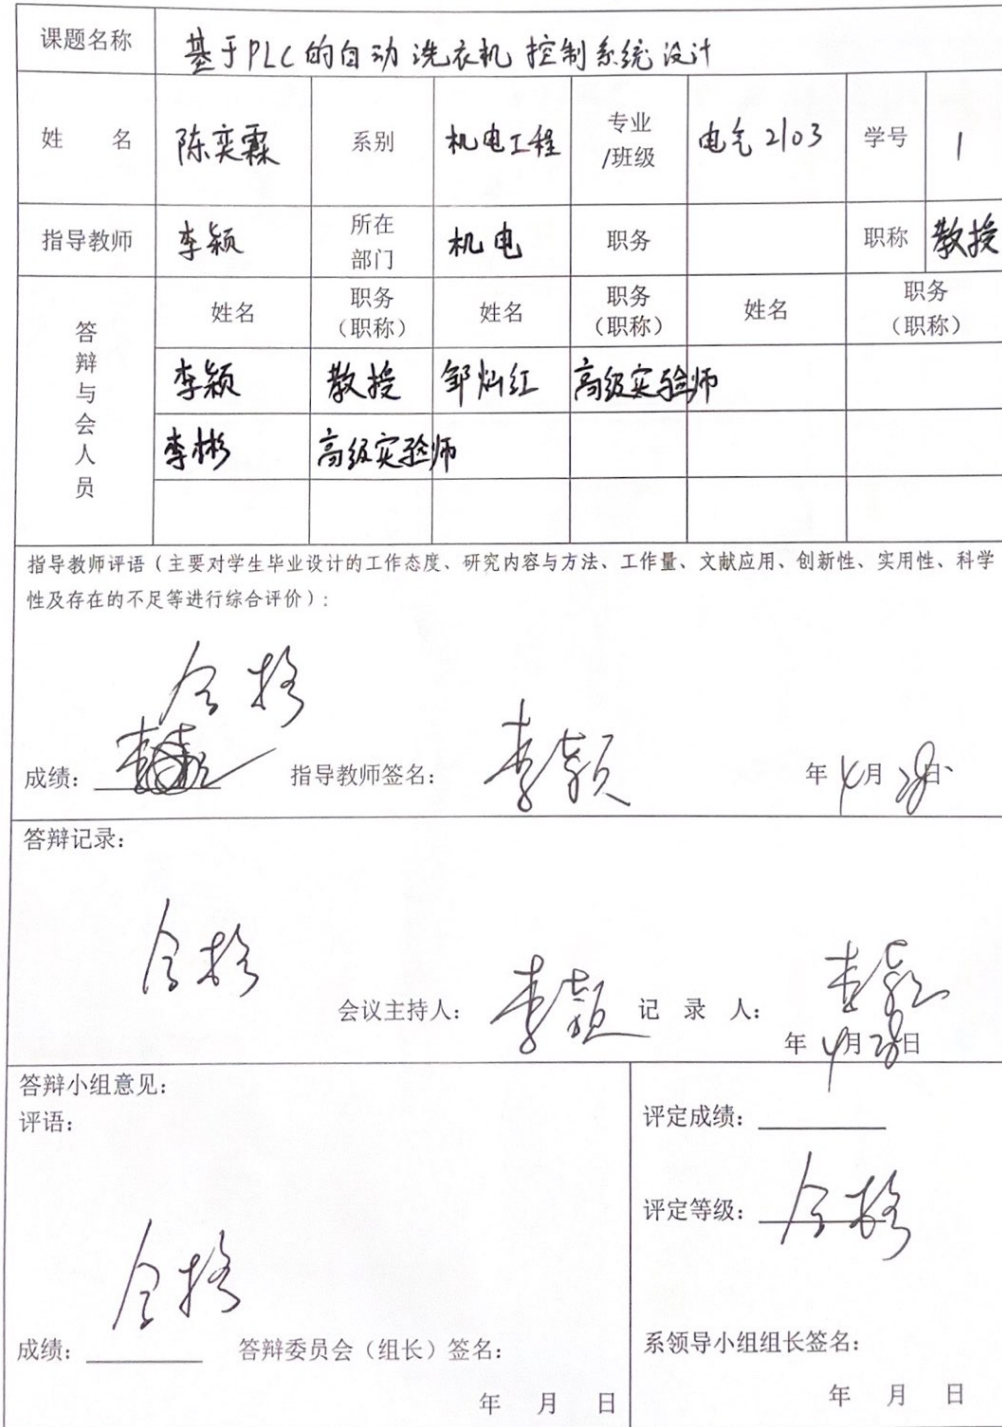 课题名称 基于PLC的自动洗衣机控制系统设计
姓 名 陈奕霖 系别 机电工程 专业/班级 电气2103 学号 1
指导教师 李颖 所在部门 机电 职务 职称 教授
答辩与会人员
姓名 职务（职称） 姓名 职务（职称） 姓名 职务（职称）
李颖 教授 邹灿红 高级实验师
李彬 高级实验师
指导教师评语（主要对学生毕业设计的工作态度、研究内容与方法、工作量、文献应用、创新性、实用性、科学
性及存在的不足等进行综合评价）:
合格
成绩: 指导教师签名: 李颖 年 4月 28日
答辩记录:
合格
会议主持人: 李颖 记 录 人: 李颖
年 4月 28日
答辩小组意见:
评语:
合格
成绩: 答辩委员会（组长）签名:
年 月 日
评定成绩:
评定等级: 合格
系领导小组组长签名:
年 月 日